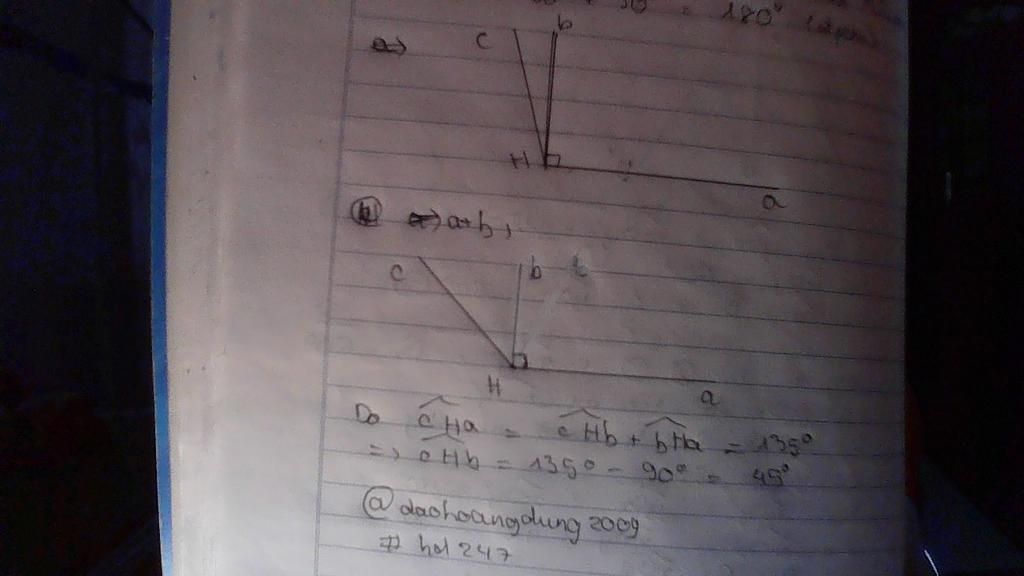 = 180°
c b
H
a
a+b,
c b t
H
a
Do cHa = cHb + bHa = 135°
=> cHb = 135° - 90° = 45°
@daohoangdung2009
# hol247